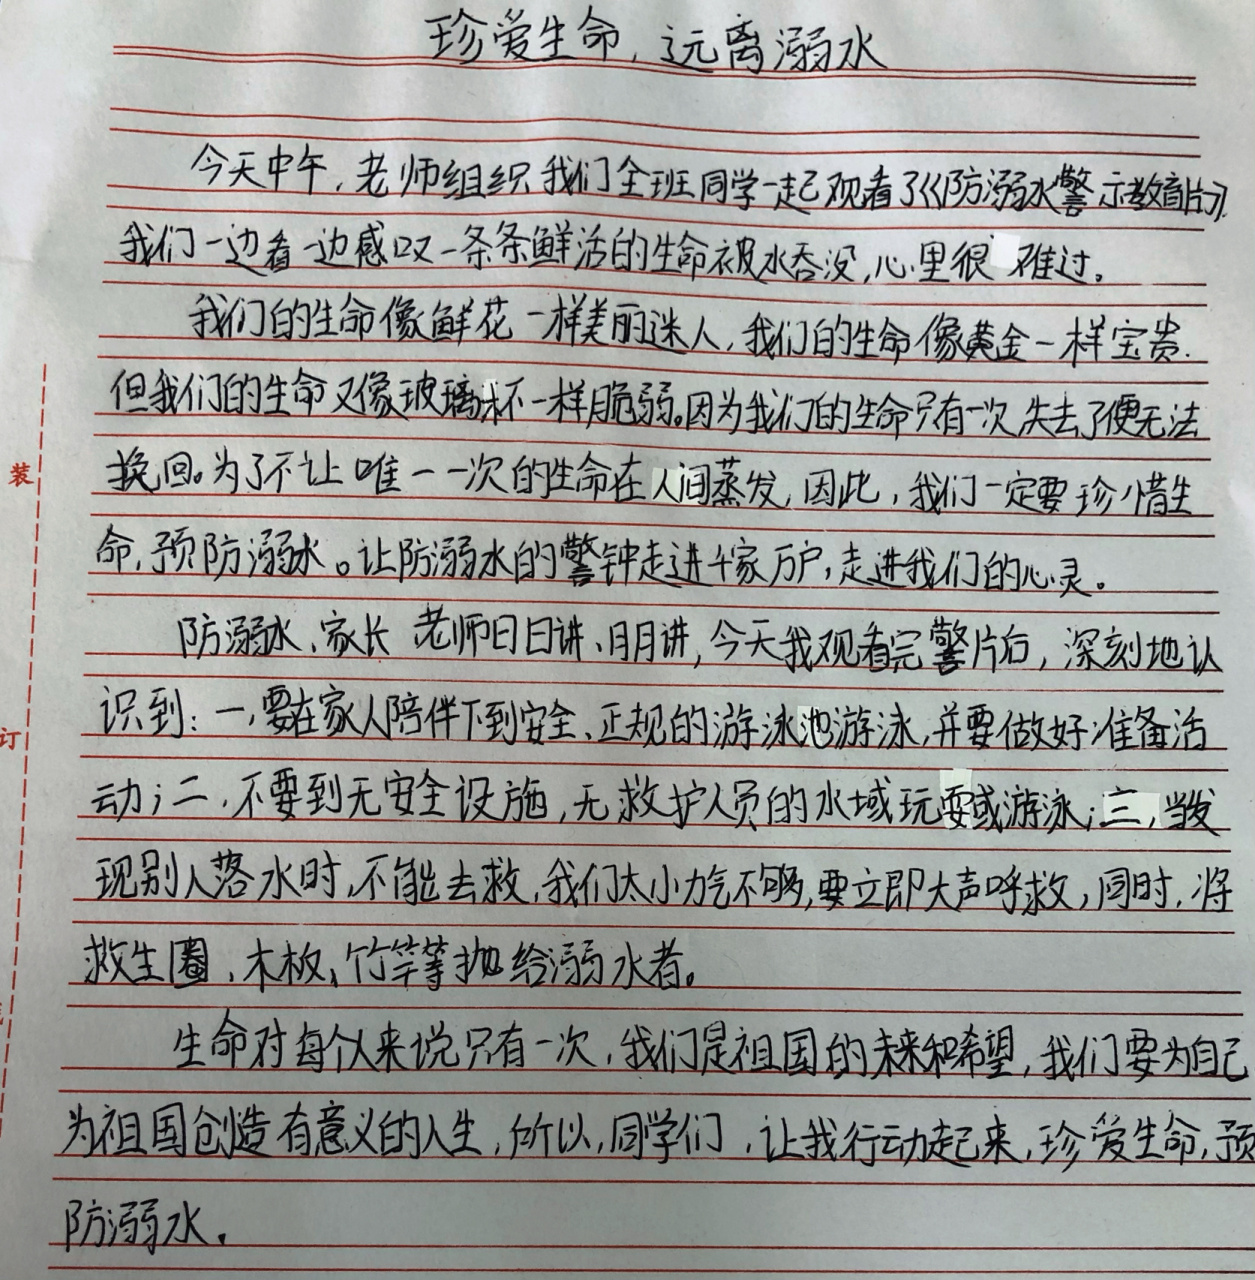 珍爱生命,远离溺水
今天中午,老师组织我们全班同学一起观看了《防溺水警示教育片》.
我们一边看一边感叹一条条鲜活的生命被水吞没,心里很难过。
我们的生命像鲜花一样美丽迷人,我们的生命像黄金一样宝贵.
但我们的生命又像玻璃杯一样脆弱。因为我们的生命只有一次,失去了便无法
装
挽回。为了不让唯一一次的生命在人间蒸发,因此,我们一定要珍惜生
命,预防溺水。让防溺水的警钟走进千家万户,走进我们的心灵。
防溺水、家长 老师日日讲、月月讲,今天我观看完警片后,深刻地认
识到:一,要在家人陪伴下到安全、正规的游泳池游泳,并要做好准备活
订
动;二,不要到无安全设施,无救护人员的水域玩耍或游泳;三,当发
现别人落水时,不能去救,我们太小力气不够,要立即大声呼救,同时,将
救生圈、木板、竹竿等抛给溺水者。
生命对每个人来说只有一次,我们是祖国的未来和希望,我们要为自己
为祖国创造有意义的人生,所以,同学们,让我行动起来,珍爱生命,预
防溺水.